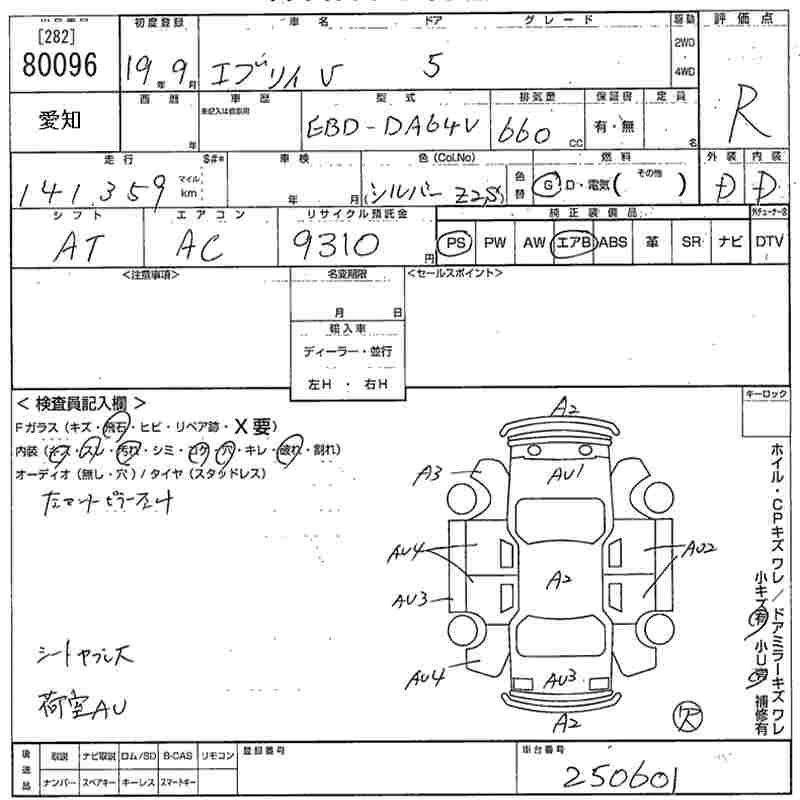 出品番号 初度登録 車名 ドア グレード 駆動 評価点
[282]
80096 19年 9月 エブリィ V 5 2WD 4WD R
愛知 西暦 年 車歴 未記入は自家用 型式 排気量 保証書 定員
EBD-DA64V 660 CC 有・無 名
走行 S#* 車検 色(Col.No) 燃料 外装 内装
141,359 マイル km 年 月 (シルバー Z2S) 色替 G D・電気( その他 ) D D
シフト エアコン リサイクル預託金 純正装備品
AT AC 9310 円 PS PW AW エアB ABS 革 SR ナビ DTV
<注意事項> 名変期限 <セールスポイント>
月 日
輸入車
ディーラー・並行
左H・右H
<検査員記入欄> キーロック
Fガラス(キズ・飛石・ヒビ・リペア跡・X要)
内装(キズ・スレ・汚れ・シミ・コゲ・穴・キレ・破れ・割れ)
オーディオ(無し・穴)/タイヤ(スタッドレス)
A2
A3 AU1
AU4 AU2
A2
AU3
シートヤブレ大
AU4 AU3
荷室AU
A2 欠
ホイル・CPキズ ワレ/ドアミラーキズ ワレ
小キズ有 小U有 補修有
後送品 取説 ナビ取説 ロム/SD B-CAS リモコン 登録番号 車台番号
ナンバー スペアキー キーレス スマートキー 250601